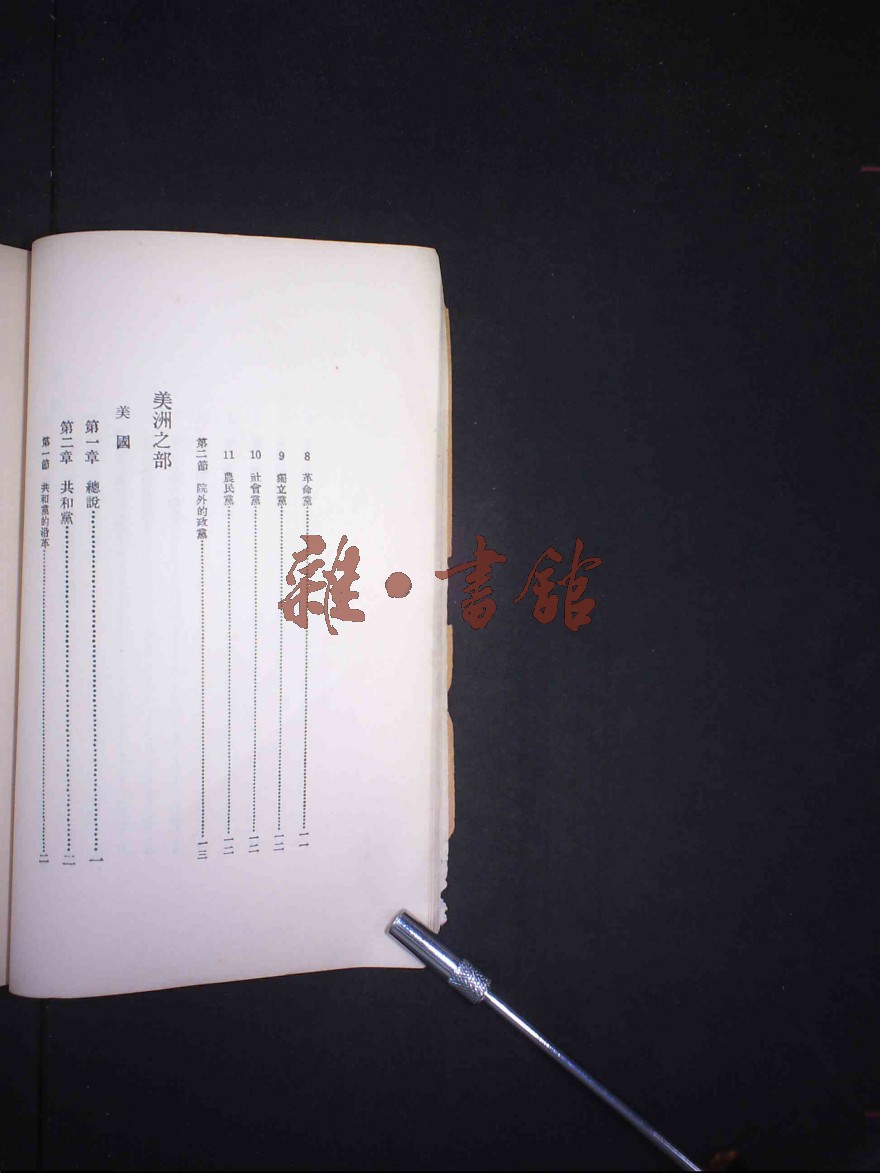 8 革命黨……一一
9 獨立黨……一二
10 社會黨……一二
11 農民黨……一二
第二節 院外的政黨……一三
美洲之部
美國
第一章 總說……一
第二章 共和黨……二
第一節 共和黨的沿革……二
雜·書館